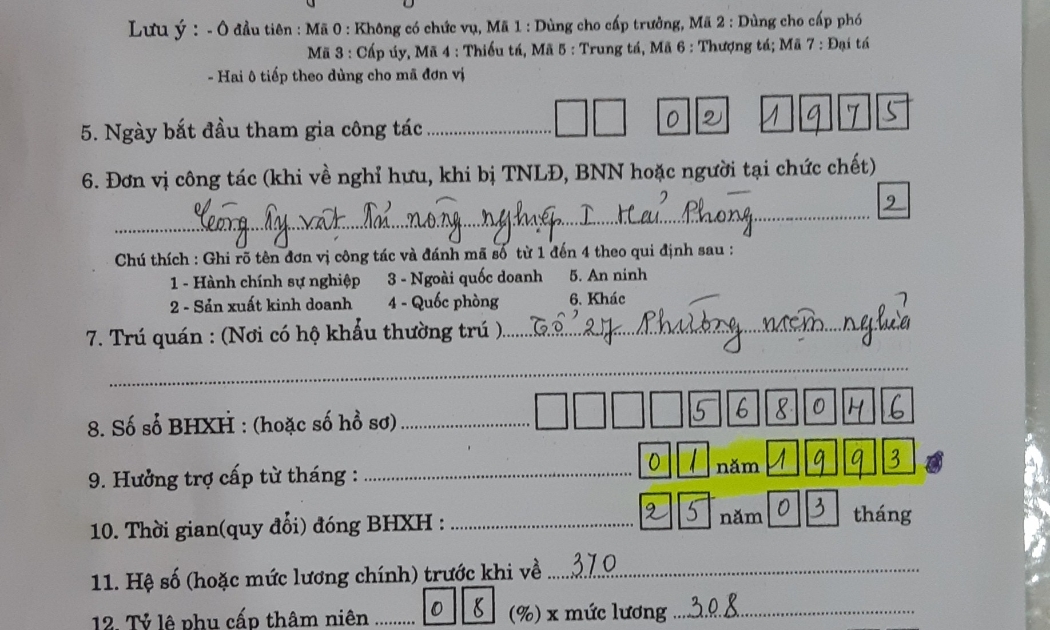 Lưu ý : - Ô đầu tiên : Mã 0 : Không có chức vụ, Mã 1 : Dùng cho cấp trưởng, Mã 2 : Dùng cho cấp phó
Mã 3 : Cấp úy, Mã 4 : Thiếu tá, Mã 5 : Trung tá, Mã 6 : Thượng tá; Mã 7 : Đại tá
- Hai ô tiếp theo dùng cho mã đơn vị
5. Ngày bắt đầu tham gia công tác 02 1975
6. Đơn vị công tác (khi về nghỉ hưu, khi bị TNLĐ, BNN hoặc người tại chức chết)
Công ty vật tư nông nghiệp I Hải Phòng 2
Chú thích : Ghi rõ tên đơn vị công tác và đánh mã số từ 1 đến 4 theo qui định sau :
1 - Hành chính sự nghiệp 3 - Ngoài quốc doanh 5. An ninh
2 - Sản xuất kinh doanh 4 - Quốc phòng 6. Khác
7. Trú quán : (Nơi có hộ khẩu thường trú ) Tổ 27 Phường niệm nghĩa
8. Số sổ BHXH : (hoặc số hồ sơ) 568046
9. Hưởng trợ cấp từ tháng : 01 năm 1993
10. Thời gian(quy đổi) đóng BHXH : 25 năm 03 tháng
11. Hệ số (hoặc mức lương chính) trước khi về 310
12. Tỷ lệ phụ cấp thâm niên 08 (%) x mức lương 308